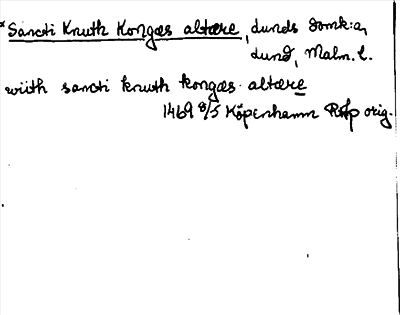 *Sancti Knuth Kongæs altære, Lunds domk:a,
Lund, Malm. l.
wiith sancti knwth kongæs altære
1469 8/5 Köpenhamn RAp orig.